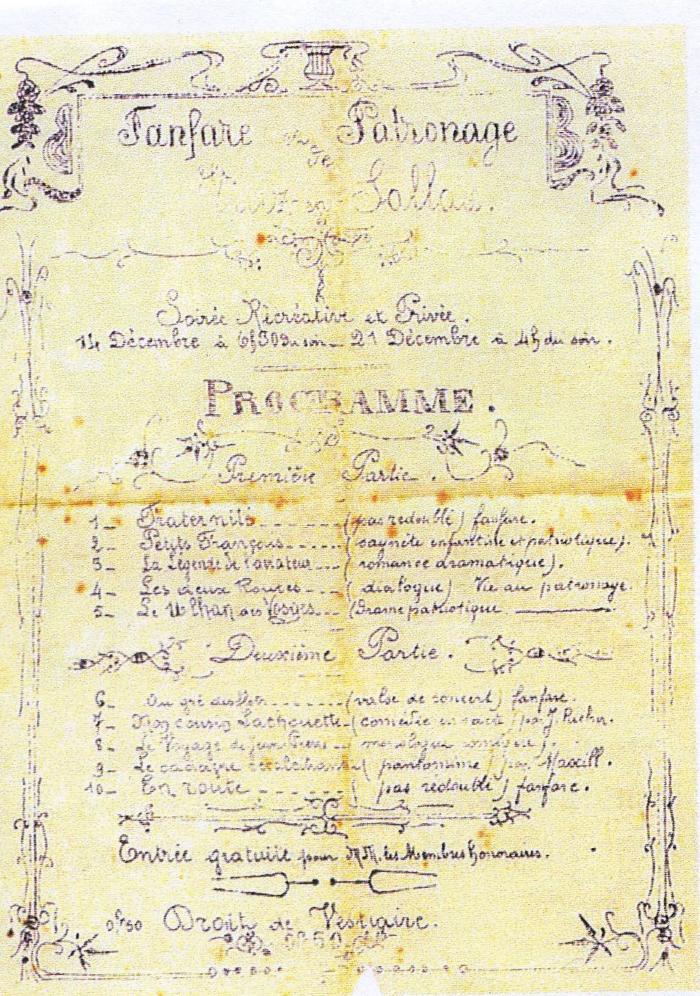 Fanfare et Patronage
de
Sallau.
Soirée Récréative et Privée.
14 Décembre à 6h30 du soir _ 21 Décembre à 4h du soir.
PROGRAMME.
Première Partie.
1_ Fraternité ------- (pas redoublé) fanfare.
2_ Petits Français ----- (saynète enfantine et patriotique).
3_ La Légende de l'aviateur --- (romance dramatique).
4_ Les deux Routes --- (dialogue) Vie au patronage.
5_ Le Uhlan des Vosges --- (drame patriotique
Deuxième Partie.
6_ Au gré des flots ------- (valse de concert) fanfare.
7_ Mon cousin Lachouette _ (comédie en 1 acte) par J. Richer.
8_ Le Voyage de --- (monologue comique).
9_ Le cadavre (pantomime) par Maxill.
10_ En route ------- (pas redoublé) fanfare.
Entrée gratuite pour MM. les Membres honoraires.
0f50 Droit de Vestiaire.
0f50